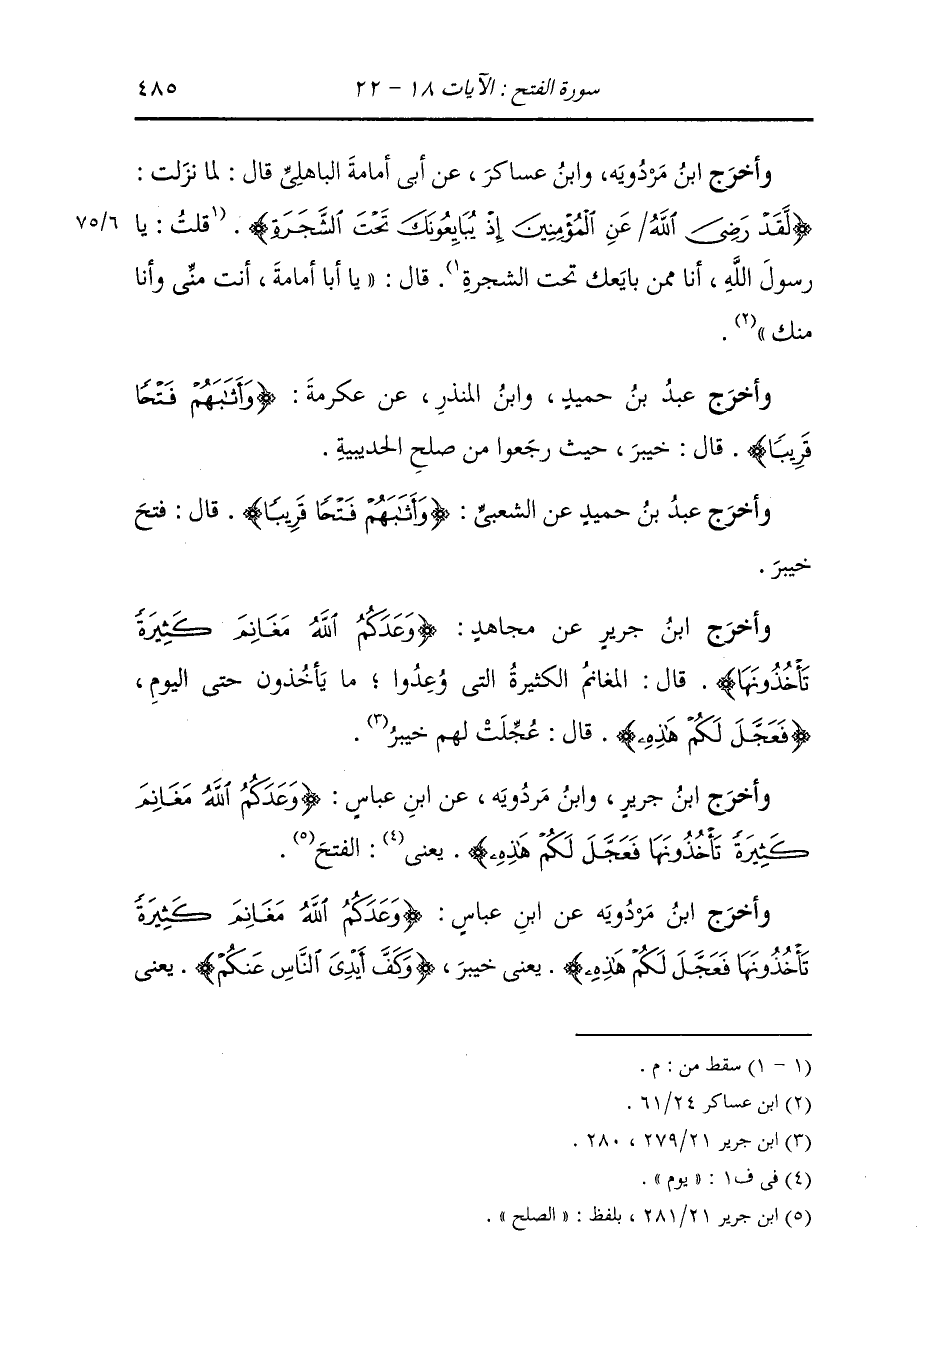 سورة الفتح : الآيات ١٨ - ٢٢ ٤٨٥
وأخرَج ابنُ مَرْدُويَه، وابنُ عساكرَ ، عن أبى أمامةَ الباهلِىِّ قال : لما نزَلت :
﴿لَّقَدْ رَضِىَ ٱللَّهُ/ عَنِ ٱلْمُؤْمِنِينَ إِذْ يُبَايِعُونَكَ تَحْتَ ٱلشَّجَرَةِ﴾ . (١قلتُ : يا ٧٥/٦
رسولَ اللَّهِ ، أنا ممن بايَعك تحت الشجرةِ١). قال : « يا أبا أمامةَ ، أنت منِّى وأنا
منك »(٢) .
وأخرَج عبدُ بنُ حميدٍ ، وابنُ المنذرِ ، عن عكرمةَ : ﴿وَأَثَٰبَهُمْ فَتْحًا
قَرِيبًا﴾ . قال : خيبرَ ، حيث رجَعوا من صلحِ الحديبيةِ .
وأخرَج عبدُ بنُ حميدٍ عن الشعبىِّ : ﴿وَأَثَٰبَهُمْ فَتْحًا قَرِيبًا﴾ . قال : فتحَ
خيبرَ .
وأخرَج ابنُ جريرٍ عن مجاهدٍ : ﴿وَعَدَكُمُ ٱللَّهُ مَغَانِمَ كَثِيرَةً
تَأْخُذُونَهَا﴾ . قال : المغانمُ الكثيرةُ التى وُعِدُوا ؛ ما يَأخُذون حتى اليومِ ،
﴿فَعَجَّلَ لَكُمْ هَٰذِهِۦ﴾ . قال : عُجِّلَتْ لهم خيبرُ(٣) .
وأخرَج ابنُ جريرٍ ، وابنُ مَردُويَه ، عن ابنِ عباسٍ : ﴿وَعَدَكُمُ ٱللَّهُ مَغَانِمَ
كَثِيرَةً تَأْخُذُونَهَا فَعَجَّلَ لَكُمْ هَٰذِهِۦ﴾ . يعنى(٤) : الفتحَ(٥) .
وأخرَج ابنُ مَرْدُويَه عن ابنِ عباسٍ : ﴿وَعَدَكُمُ ٱللَّهُ مَغَانِمَ كَثِيرَةً
تَأْخُذُونَهَا فَعَجَّلَ لَكُمْ هَٰذِهِۦ﴾ . يعنى خيبرَ ، ﴿وَكَفَّ أَيْدِىَ ٱلنَّاسِ عَنكُمْ﴾ . يعنى
(١ - ١) سقط من : م .
(٢) ابن عساكر ٦١/٢٤ .
(٣) ابن جرير ٢٧٩/٢١ ، ٢٨٠ .
(٤) فى ف١ : « يوم » .
(٥) ابن جرير ٢٨١/٢١ ، بلفظ : « الصلح » .